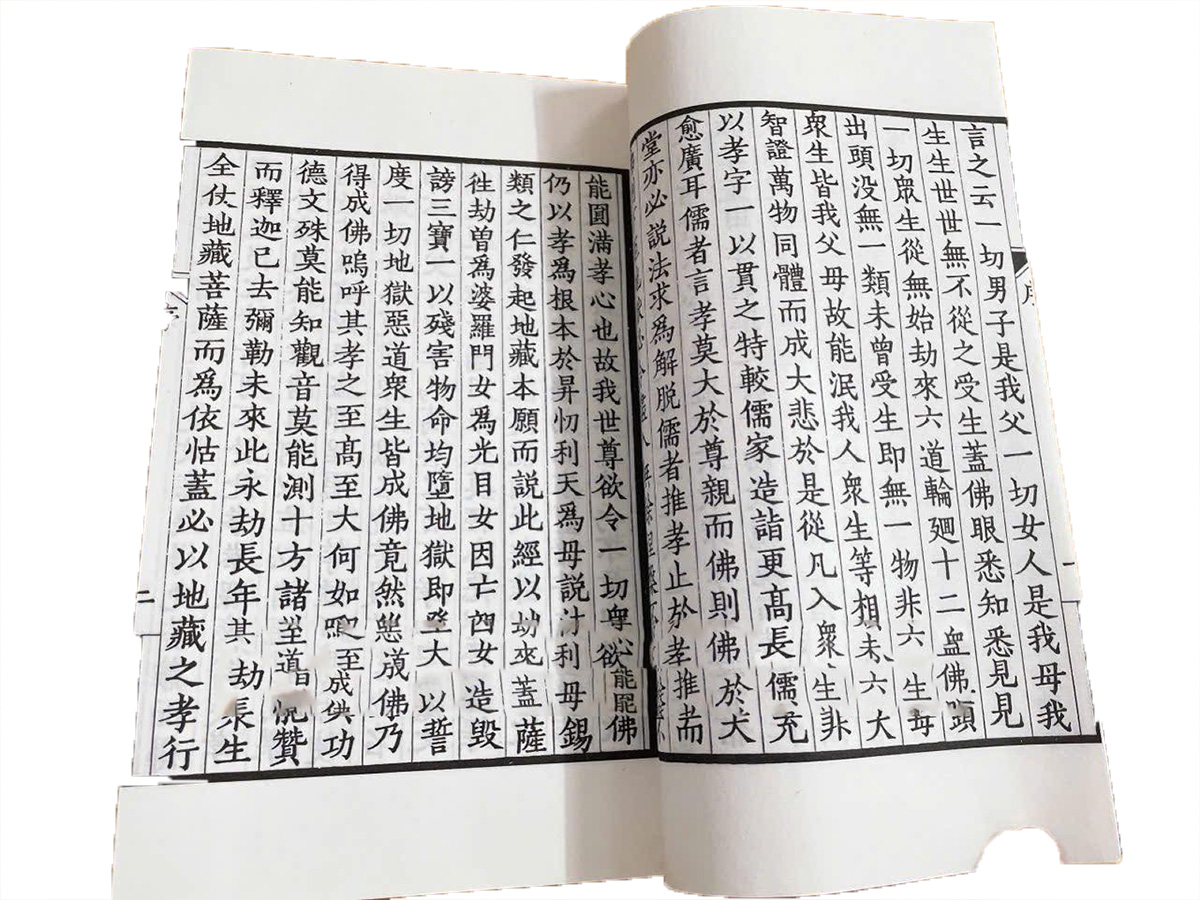 言之云一切男子是我父一切女人是我母我
生生世世無不從之受生蓋佛眼悉知悉見見
一切眾生從無始劫來六道輪廻十二佛頭
出頭没無一類未曾受生即無一物非六生每
衆生皆我父母故能泯我人衆生等相未六大
智證萬物同體而成大悲於是從凡入衆生非
以孝字一以貫之特較儒家造詣更髙長儒充
愈廣耳儒者言孝莫大於尊親而佛則佛於大
堂亦必説法求爲解脱儒者推孝止於孝推
能圓滿孝心也故我世尊欲令一切心欲能佛
仍以孝爲根本於昇忉利天爲母説利母錫
類之仁發起地藏本願而説此經以蓋薩
徃劫曽爲婆羅門女爲光目女因亡女造毀
謗三寶一以殘害物命均墮地獄即墮大以誓
度一切地獄惡道衆生皆成佛竟然成佛乃
得成佛嗚呼其孝之至髙至大何如至成功
德文殊莫能知觀音莫能測十方諸道讚
而釋迦已去彌勒未來此永劫長年其劫長生
全仗地藏菩薩而爲依怙蓋必以地藏之孝行
序
二